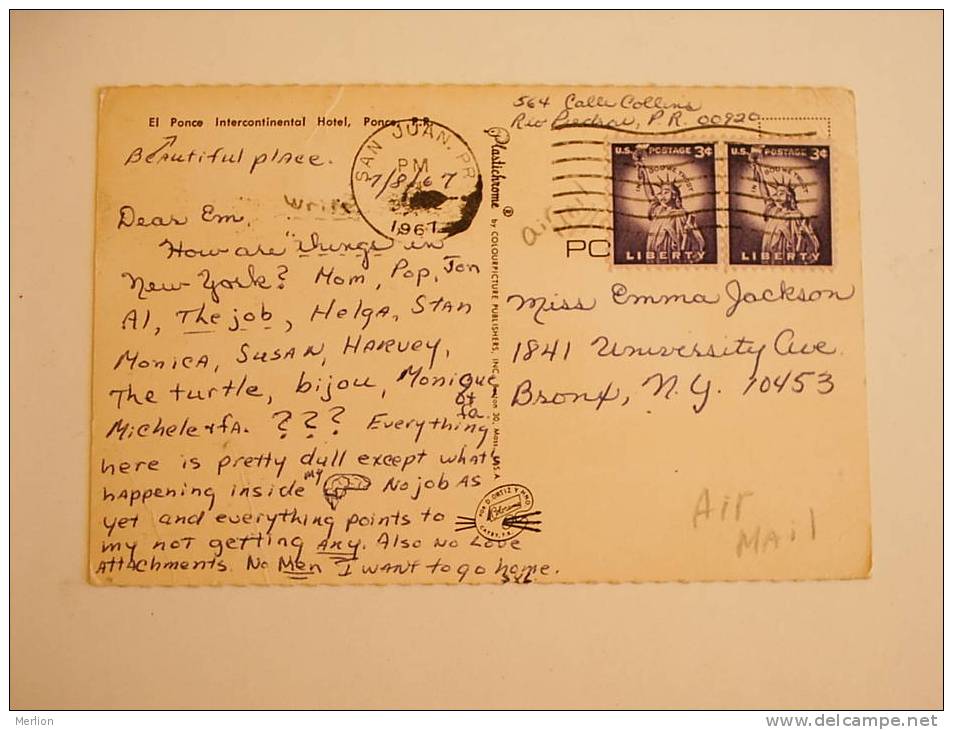 El Ponce Intercontinental Hotel, Ponce, P.R.
Beautiful place.
write
Dear Em,
How are "things" in
New York? Mom, Pop, Jon
Al, The job, Helga, Stan
Monica, Susan, Harvey,
The turtle, bijou, Monique
Michele + fa. ? ? ? Everything
here is pretty dull except what's
happening inside my No job as
yet and everything points to
my not getting any. Also no love
attachments. No Men I want to go home.
SAN JUAN, PR
PM
7/8/67
1967
Plastichrome ® by COLOURPICTURE PUBLISHERS, INC.
30, Mass. U.S.A
564 Calle Collins
Rio Piedras, P.R. 00920
airmail
PO
U.S. POSTAGE 3¢
IN GOD WE TRUST
LIBERTY
U.S. POSTAGE 3¢
IN GOD WE TRUST
LIBERTY
Miss Emma Jackson
1841 University Ave.
Bronx, N.Y. 10453
Air
Mail
Merlion
www.delcampe.net